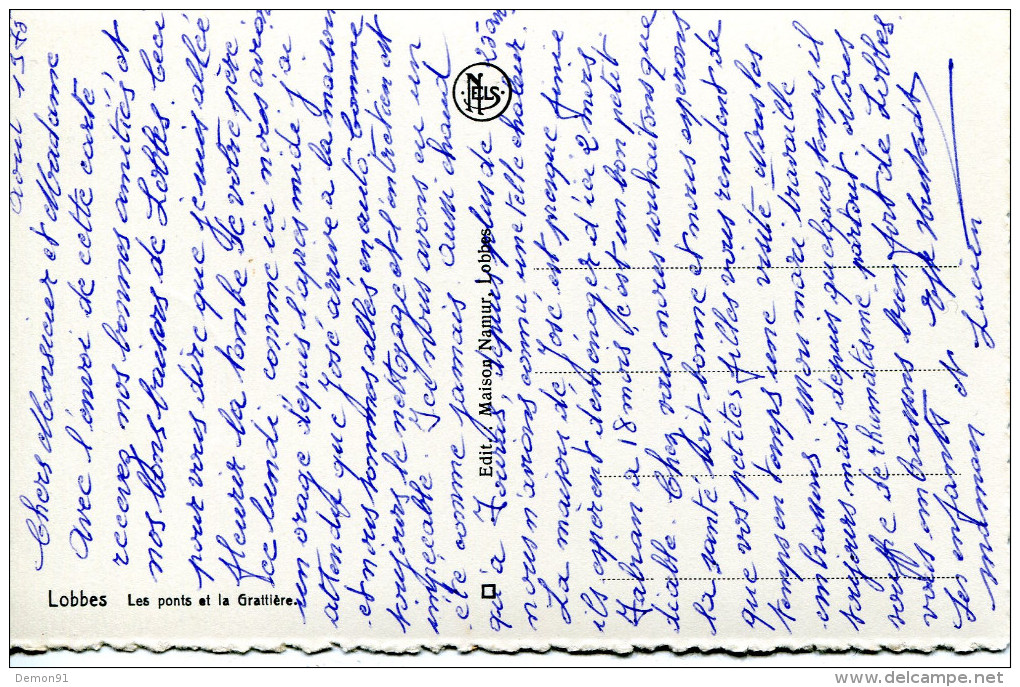 Aout 1973
Chers Monsieur et Madame
Avec l'envoi de cette carte
recevez nos bonnes amitiés et
nos bons baisers de Lobbes. Ceci
pour vous dire que je suis allée
fleurir la tombe de votre père
ce lundi comme ici nous avions
un orage depuis l'après midi j'ai
attendu que José arrive a la maison
et nous sommes allés en auto, comme
toujours le nettoyage et l'entretien est
impécable. Ici nous avons eu un
été comme jamais aussi chaud
qu'a depuis plus de 25 ans
nous n'avions connu une telle chaleur.
La maison de José est presque finie
ils espèrent déménager d'ici 2 mois
Fabian a 18 mois, c'est un bon petit
diable. Chez vous nous souhaitons que
la santé soit bonne et nous espérons
que vos petites filles vous rendent de
temps en temps une visite
mon mari travaille
toujours mais depuis quelques temps il
souffre de rhumatisme partout. Nous
vous embrassons bien fort de Lobbes.
Les enfants et
maman et Lucien
Lobbes Les ponts et la Grattière.
Edit. Maison Namur, Lobbes
NELS
Demon91
www.delcampe.net